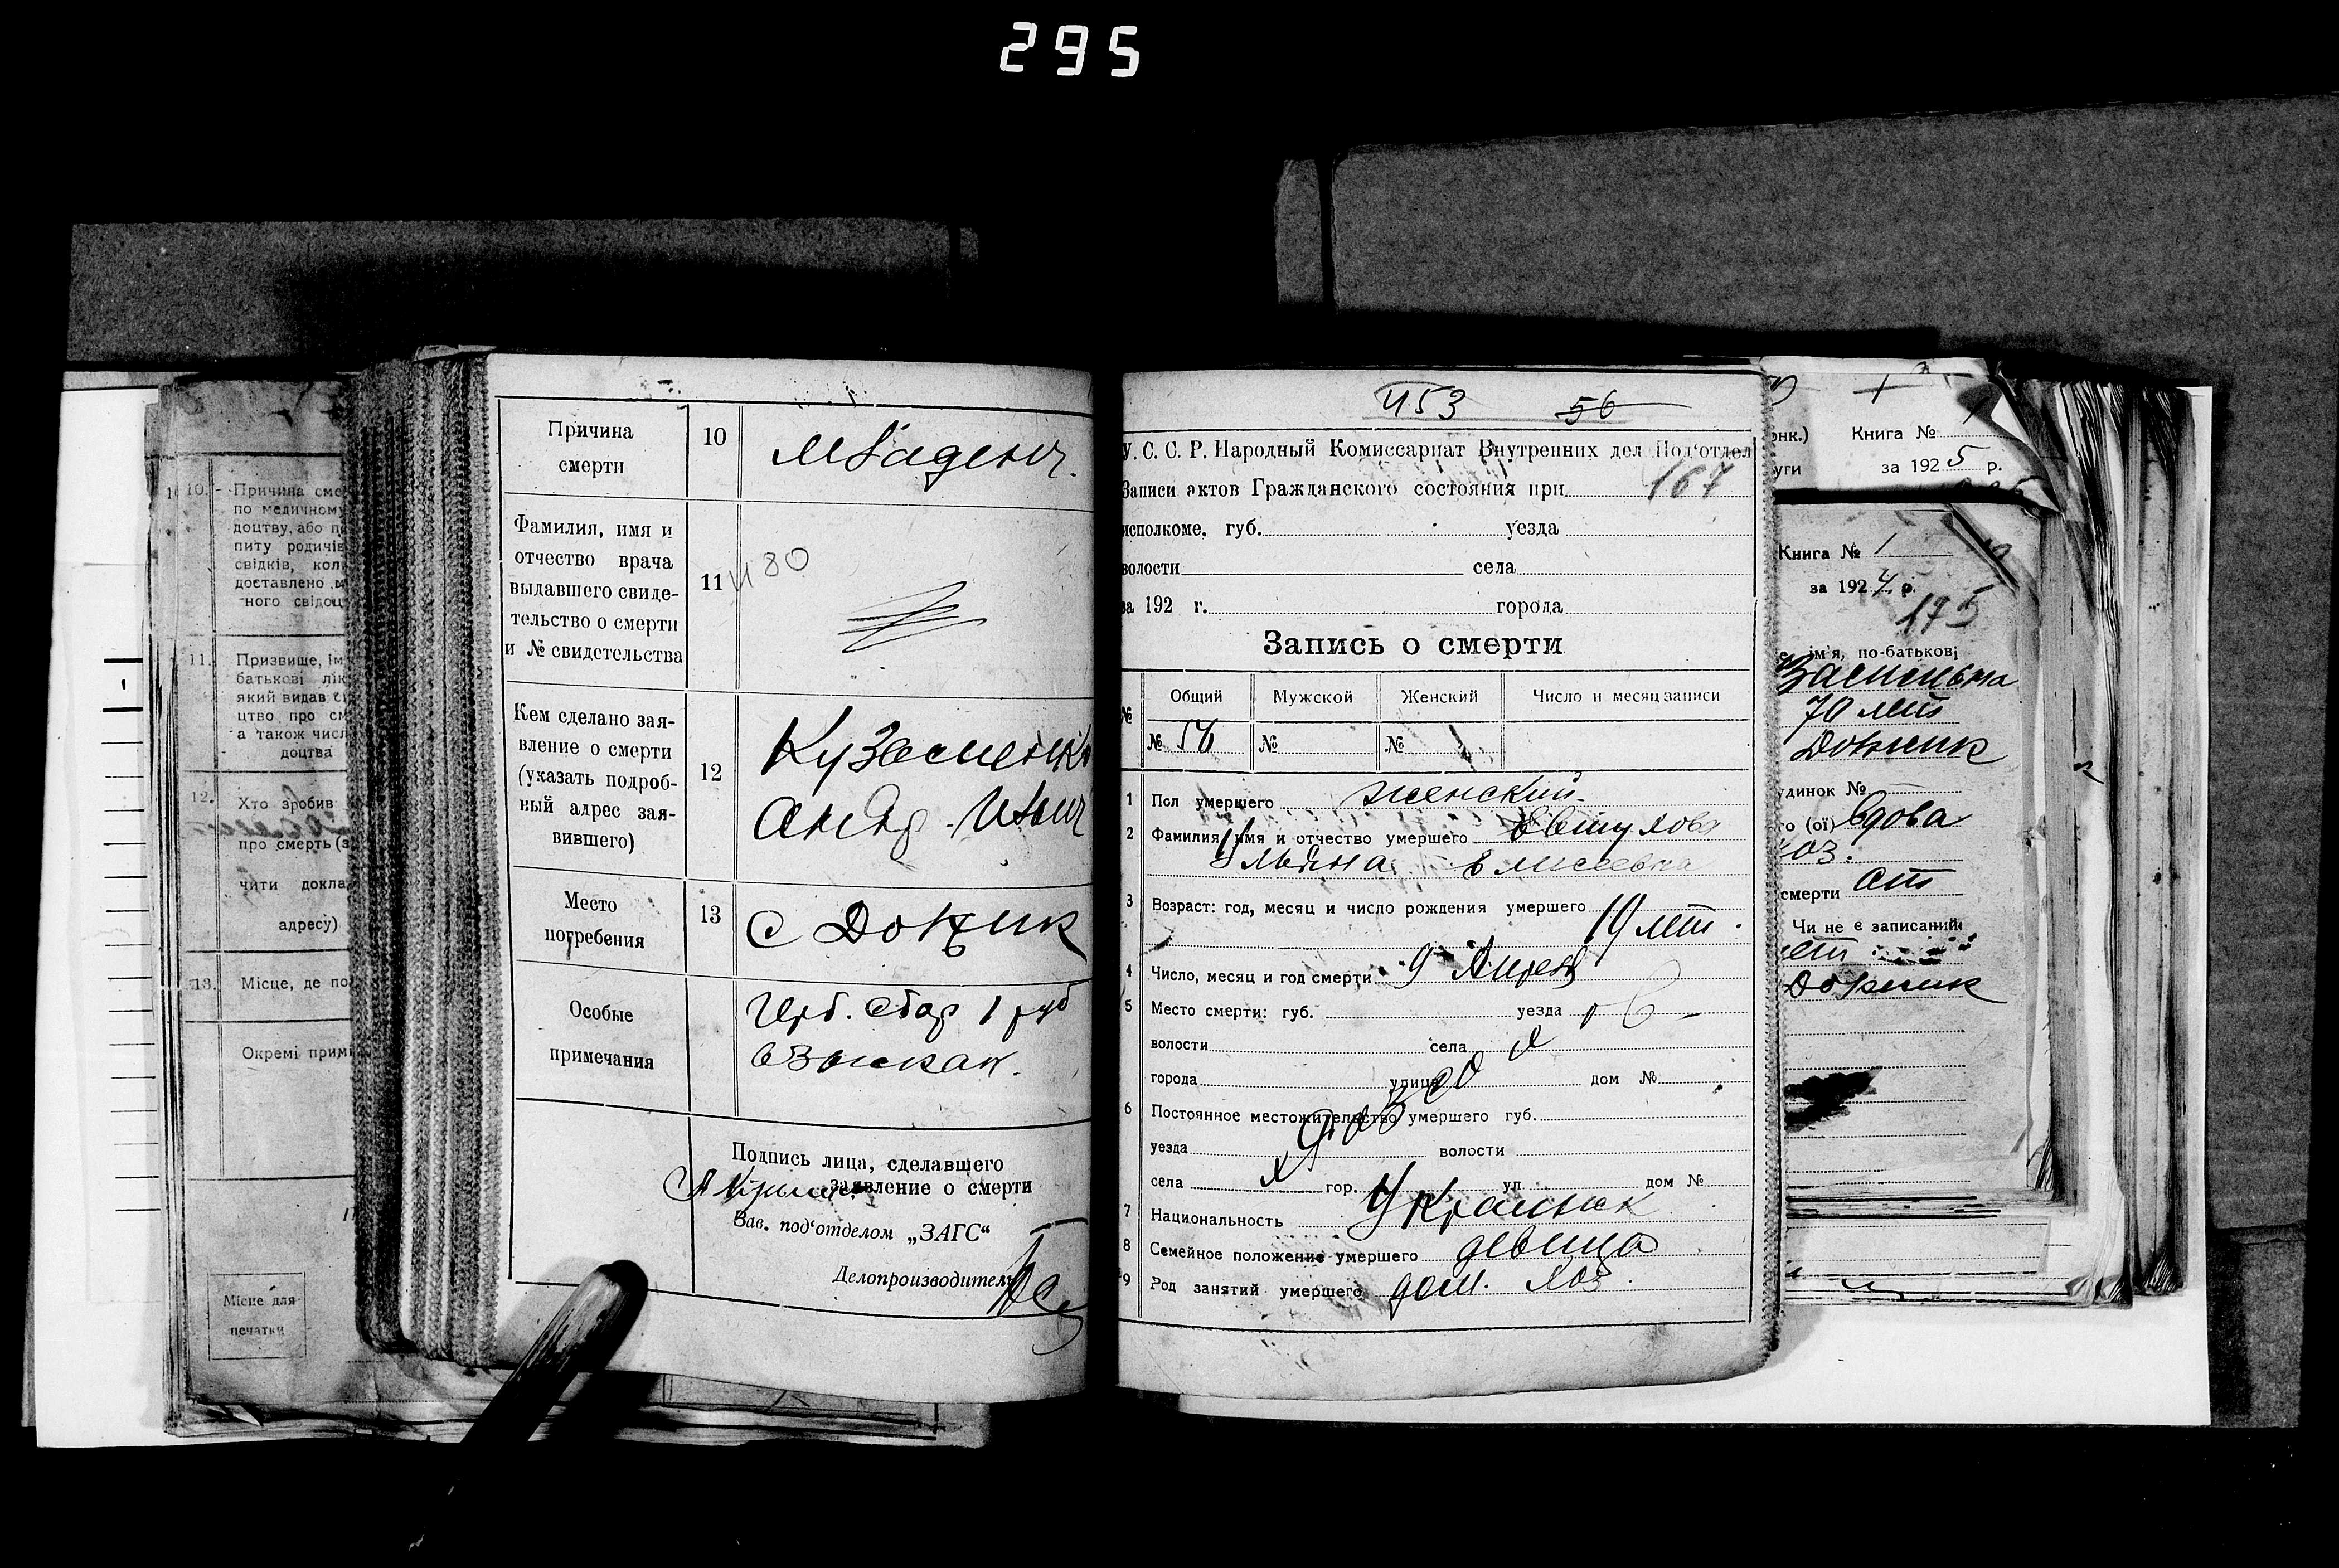 295
10. Причина сме
по медичному
доцтву, або п
питу родичів
свідків, кол
доставлено м
ного свідоц
11. Призвище, ім
батькові лік
який видав с
цтво про см
а також числ
доцтва
12. Хто зробив
про смерть (з
чити докла
адресу)
13. Місце, де по
Окремі прим
Місце для
печатки
Причина смерти 10 Младенч.
Фамилия, имя и
отчество врача
выдавшего свиде-
тельство о смерти
и № свидетельства
11 480
Кем сделано зая-
вление о смерти
(указать подроб-
ный адрес зая-
вившего)
12
Кузьменк
Андр. Ильич
Место
погребения
13 с Докник
Особые
примечания
Герб. сбор 1 руб
взыскан.
Подпись лица, сделавшего
заявление о смерти
Зав. под‘отделом „ЗАГС“
Делопроизводитель
453 56
У. С. С. Р. Народный Комиссариат Внутренних дел Под‘отдел
Записи актов Гражданского состояния при 167
исполкоме. губ. уезда
волости села
за 192 г. города
Запись о смерти
№ Общий Мужской Женский Число и месяц записи
№ 56 № №
1 Пол умершего женский
2 Фамилия, имя и отчество умершего Евтухова
Ульяна Елисеевна
3 Возраст: год, месяц и число рождения умершего 19 лет.
4 Число, месяц и год смерти 9 Апреля
5 Место смерти: губ. уезда
волости села
города улица дом №
6 Постоянное местожительство умершего губ.
уезда волости
села гор. ул. дом №
7 Национальность Украинск
8 Семейное положение умершего девица
9 Род занятий умершего дом. хоз.
онк.) Книга № 1
уги за 1925 р.
Книга № 1
за 1924 р.
175
е, ім'я, по-батькові
Васильевна
70 лет
Докник
удинок №
го (ої) Вдова
хоз.
смерти от
Чи не є записаний
лет
Докник